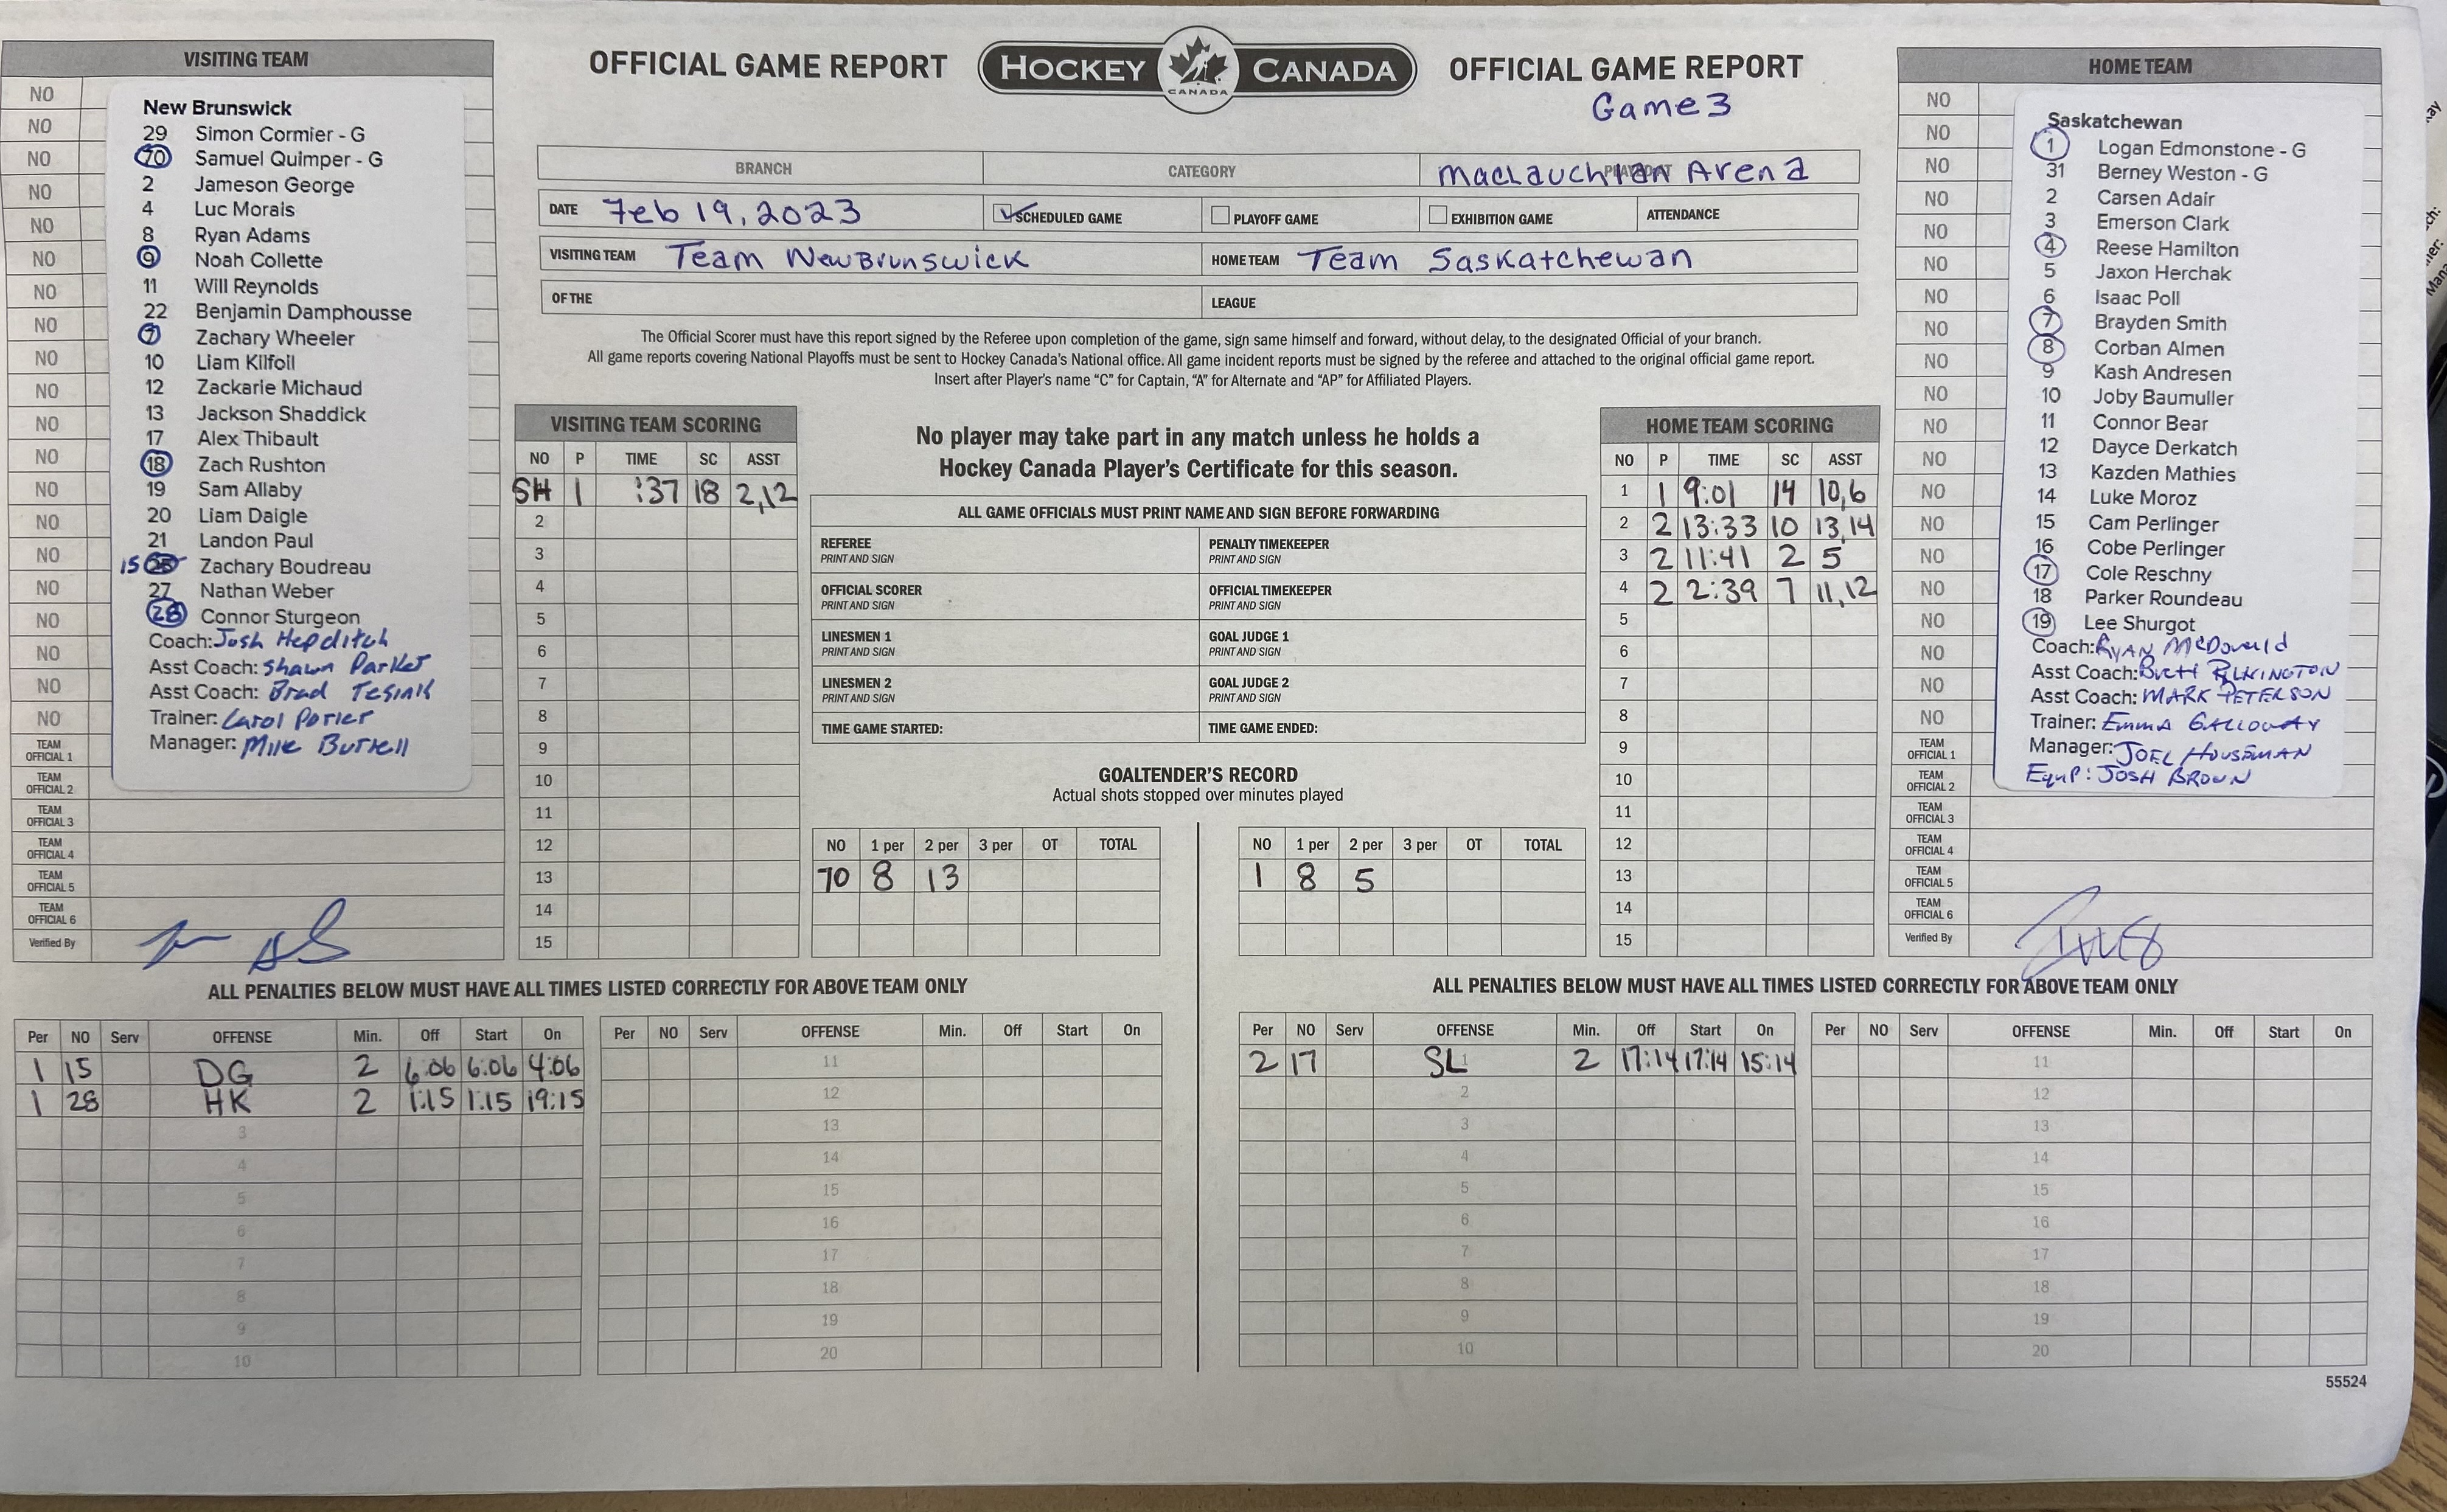 OFFICIAL GAME REPORT
HOCKEY CANADA
CANADA
OFFICIAL GAME REPORT
Game 3
BRANCH CATEGORY MacLauchlan Arena
DATE Feb 19, 2023 SCHEDULED GAME PLAYOFF GAME EXHIBITION GAME ATTENDANCE
VISITING TEAM Team NewBrunswick HOME TEAM Team Saskatchewan
OF THE LEAGUE
The Official Scorer must have this report signed by the Referee upon completion of the game, sign same himself and forward, without delay, to the designated Official of your branch.
All game reports covering National Playoffs must be sent to Hockey Canada's National office. All game incident reports must be signed by the referee and attached to the original official game report.
Insert after Player's name “C” for Captain, “A” for Alternate and “AP” for Affiliated Players.
VISITING TEAM
NO
NO
NO
NO
NO
NO
NO
NO
NO
NO
NO
NO
NO
NO
NO
NO
NO
NO
NO
NO
New Brunswick
29 Simon Cormier - G
70 Samuel Quimper - G
2 Jameson George
4 Luc Morais
8 Ryan Adams
9 Noah Collette
11 Will Reynolds
22 Benjamin Damphousse
7 Zachary Wheeler
10 Liam Kilfoil
12 Zackarie Michaud
13 Jackson Shaddick
17 Alex Thibault
18 Zach Rushton
19 Sam Allaby
20 Liam Daigle
21 Landon Paul
15 Zachary Boudreau
27 Nathan Weber
28 Connor Sturgeon
Coach: Josh Hepditch
Asst Coach: Shawn Parker
Asst Coach: Brad
Trainer: Carol
Manager: Mike Burrell
TEAM OFFICIAL 1
TEAM OFFICIAL 2
TEAM OFFICIAL 3
TEAM OFFICIAL 4
TEAM OFFICIAL 5
TEAM OFFICIAL 6
Verified By
VISITING TEAM SCORING
NO P TIME SC ASST
SH 1 :37 18 2,12
2
3
4
5
6
7
8
9
10
11
12
13
14
15
No player may take part in any match unless he holds a
Hockey Canada Player's Certificate for this season.
ALL GAME OFFICIALS MUST PRINT NAME AND SIGN BEFORE FORWARDING
REFEREE PENALTY TIMEKEEPER
PRINT AND SIGN PRINT AND SIGN
OFFICIAL SCORER OFFICIAL TIMEKEEPER
PRINT AND SIGN PRINT AND SIGN
LINESMEN 1 GOAL JUDGE 1
PRINT AND SIGN PRINT AND SIGN
LINESMEN 2 GOAL JUDGE 2
PRINT AND SIGN PRINT AND SIGN
TIME GAME STARTED: TIME GAME ENDED:
GOALTENDER'S RECORD
Actual shots stopped over minutes played
NO 1 per 2 per 3 per OT TOTAL
70 8 13
NO 1 per 2 per 3 per OT TOTAL
1 8 5
HOME TEAM SCORING
NO P TIME SC ASST
1 1 9:01 14 10,6
2 2 13:33 10 13,14
3 2 11:41 2 5
4 2 2:39 7 11,12
5
6
7
8
9
10
11
12
13
14
15
HOME TEAM
NO
NO
NO
NO
NO
NO
NO
NO
NO
NO
NO
NO
NO
NO
NO
NO
NO
NO
NO
NO
Saskatchewan
1 Logan Edmonstone - G
31 Berney Weston - G
2 Carsen Adair
3 Emerson Clark
4 Reese Hamilton
5 Jaxon Herchak
6 Isaac Poll
7 Brayden Smith
8 Corban Almen
9 Kash Andresen
10 Joby Baumuller
11 Connor Bear
12 Dayce Derkatch
13 Kazden Mathies
14 Luke Moroz
15 Cam Perlinger
16 Cobe Perlinger
17 Cole Reschny
18 Parker Roundeau
19 Lee Shurgot
Coach: Ryan McDonald
Asst Coach: Brett Pilkington
Asst Coach: MARK PETERSON
Trainer: Emma GALLOWAY
Manager: JOEL HOUSEMAN
Equip: JOSH BROWN
TEAM OFFICIAL 1
TEAM OFFICIAL 2
TEAM OFFICIAL 3
TEAM OFFICIAL 4
TEAM OFFICIAL 5
TEAM OFFICIAL 6
Verified By
ALL PENALTIES BELOW MUST HAVE ALL TIMES LISTED CORRECTLY FOR ABOVE TEAM ONLY
Per NO Serv OFFENSE Min. Off Start On
1 15 DG 2 6:06 6:06 4:06
1 28 HK 2 1:15 1:15 19:15
3
4
5
6
7
8
9
10
Per NO Serv OFFENSE Min. Off Start On
11
12
13
14
15
16
17
18
19
20
ALL PENALTIES BELOW MUST HAVE ALL TIMES LISTED CORRECTLY FOR ABOVE TEAM ONLY
Per NO Serv OFFENSE Min. Off Start On
2 17 SL 1 2 17:14 17:14 15:14
2
3
4
5
6
7
8
9
10
Per NO Serv OFFENSE Min. Off Start On
11
12
13
14
15
16
17
18
19
20
55524